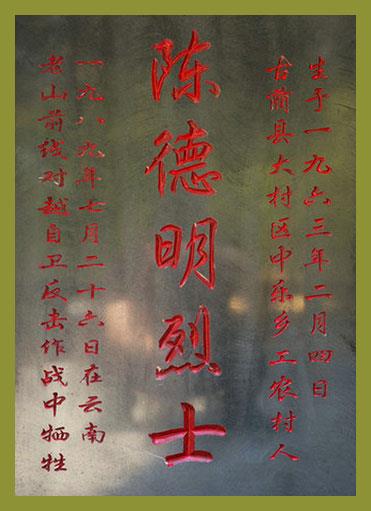 生于一九六三年二月四日
古蔺县大村区中乐乡工农村人
陈德明烈士
一九八九年七月二十六日在云南
老山前线对越自卫反击作战中牺牲